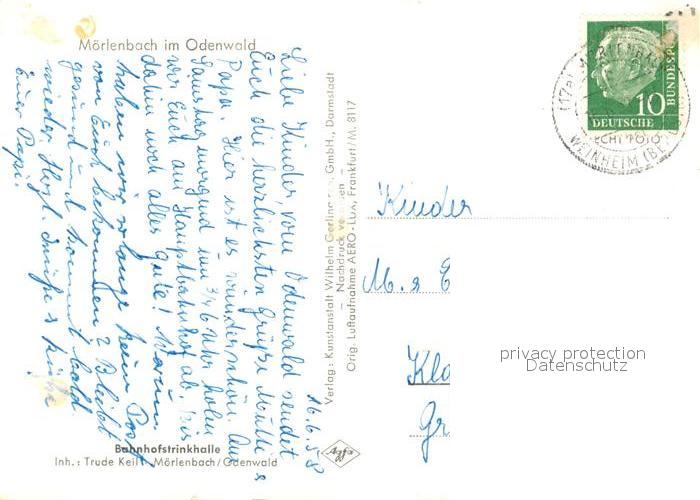 Mörlenbach im Odenwald
16.6.58
Liebe Kinder vom Odenwald sendet
Euch die herzlichsten Grüße Mutti &
Papa. Hier ist es wunderschön. Am
Samstag morgend um 3/4 6 Uhr holen
wir Euch am Hauptbahnhof ab. Bis
dahin noch alles Gute! Warum
haben wir solange kein Post
von Euch bekommen? Bleibt
gesund und kommt bald
wieder. Herzl. Grüße & Küße
Euer Papi.
Bahnhofstrinkhalle
Inh.: Trude Keil, Mörlenbach/Odenwald
Verlag: Kunstanstalt Wilhelm Gerling GmbH., Darmstadt
– Nachdruck verboten –
Orig. Luftaufnahme AERO-Lux, Frankfurt/M. 8117
Agfa
10
DEUTSCHE
BUNDESPOST
(17a)
WEINHEIM
Kinder
M. & E
Klo
Gr
privacy protection
Datenschutz